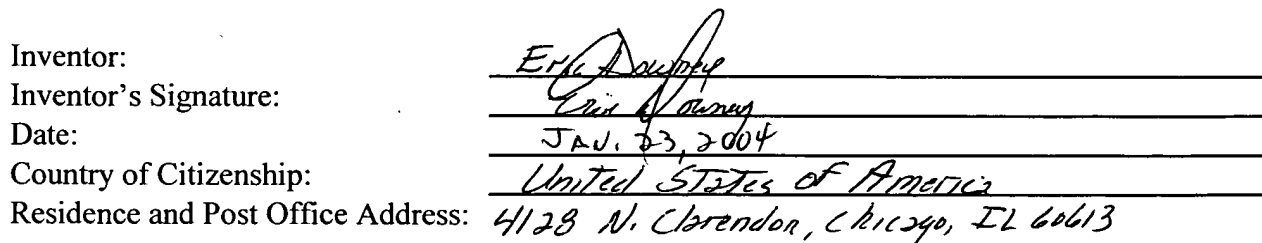 Inventor: Eric Downey
Inventor's Signature: Eric Downey
Date: JAN. 23, 2004
Country of Citizenship: United States of America
Residence and Post Office Address: 4128 N. Clarendon, Chicago, IL 60613